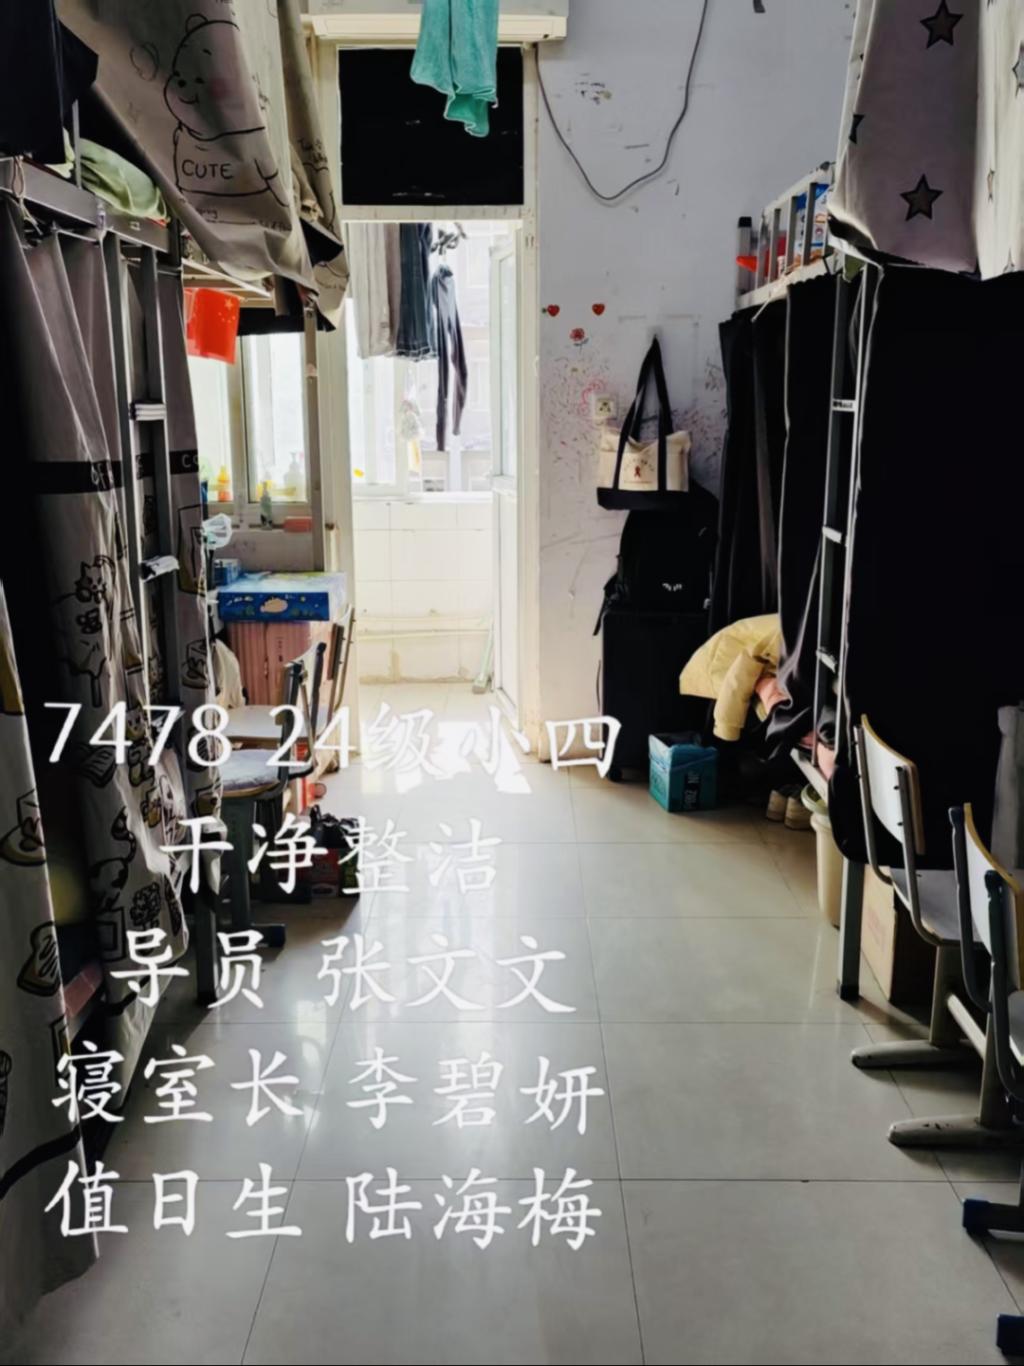 CUTE
7478 24级小四
干净整洁
导员 张文文
寝室长 李碧妍
值日生 陆海梅